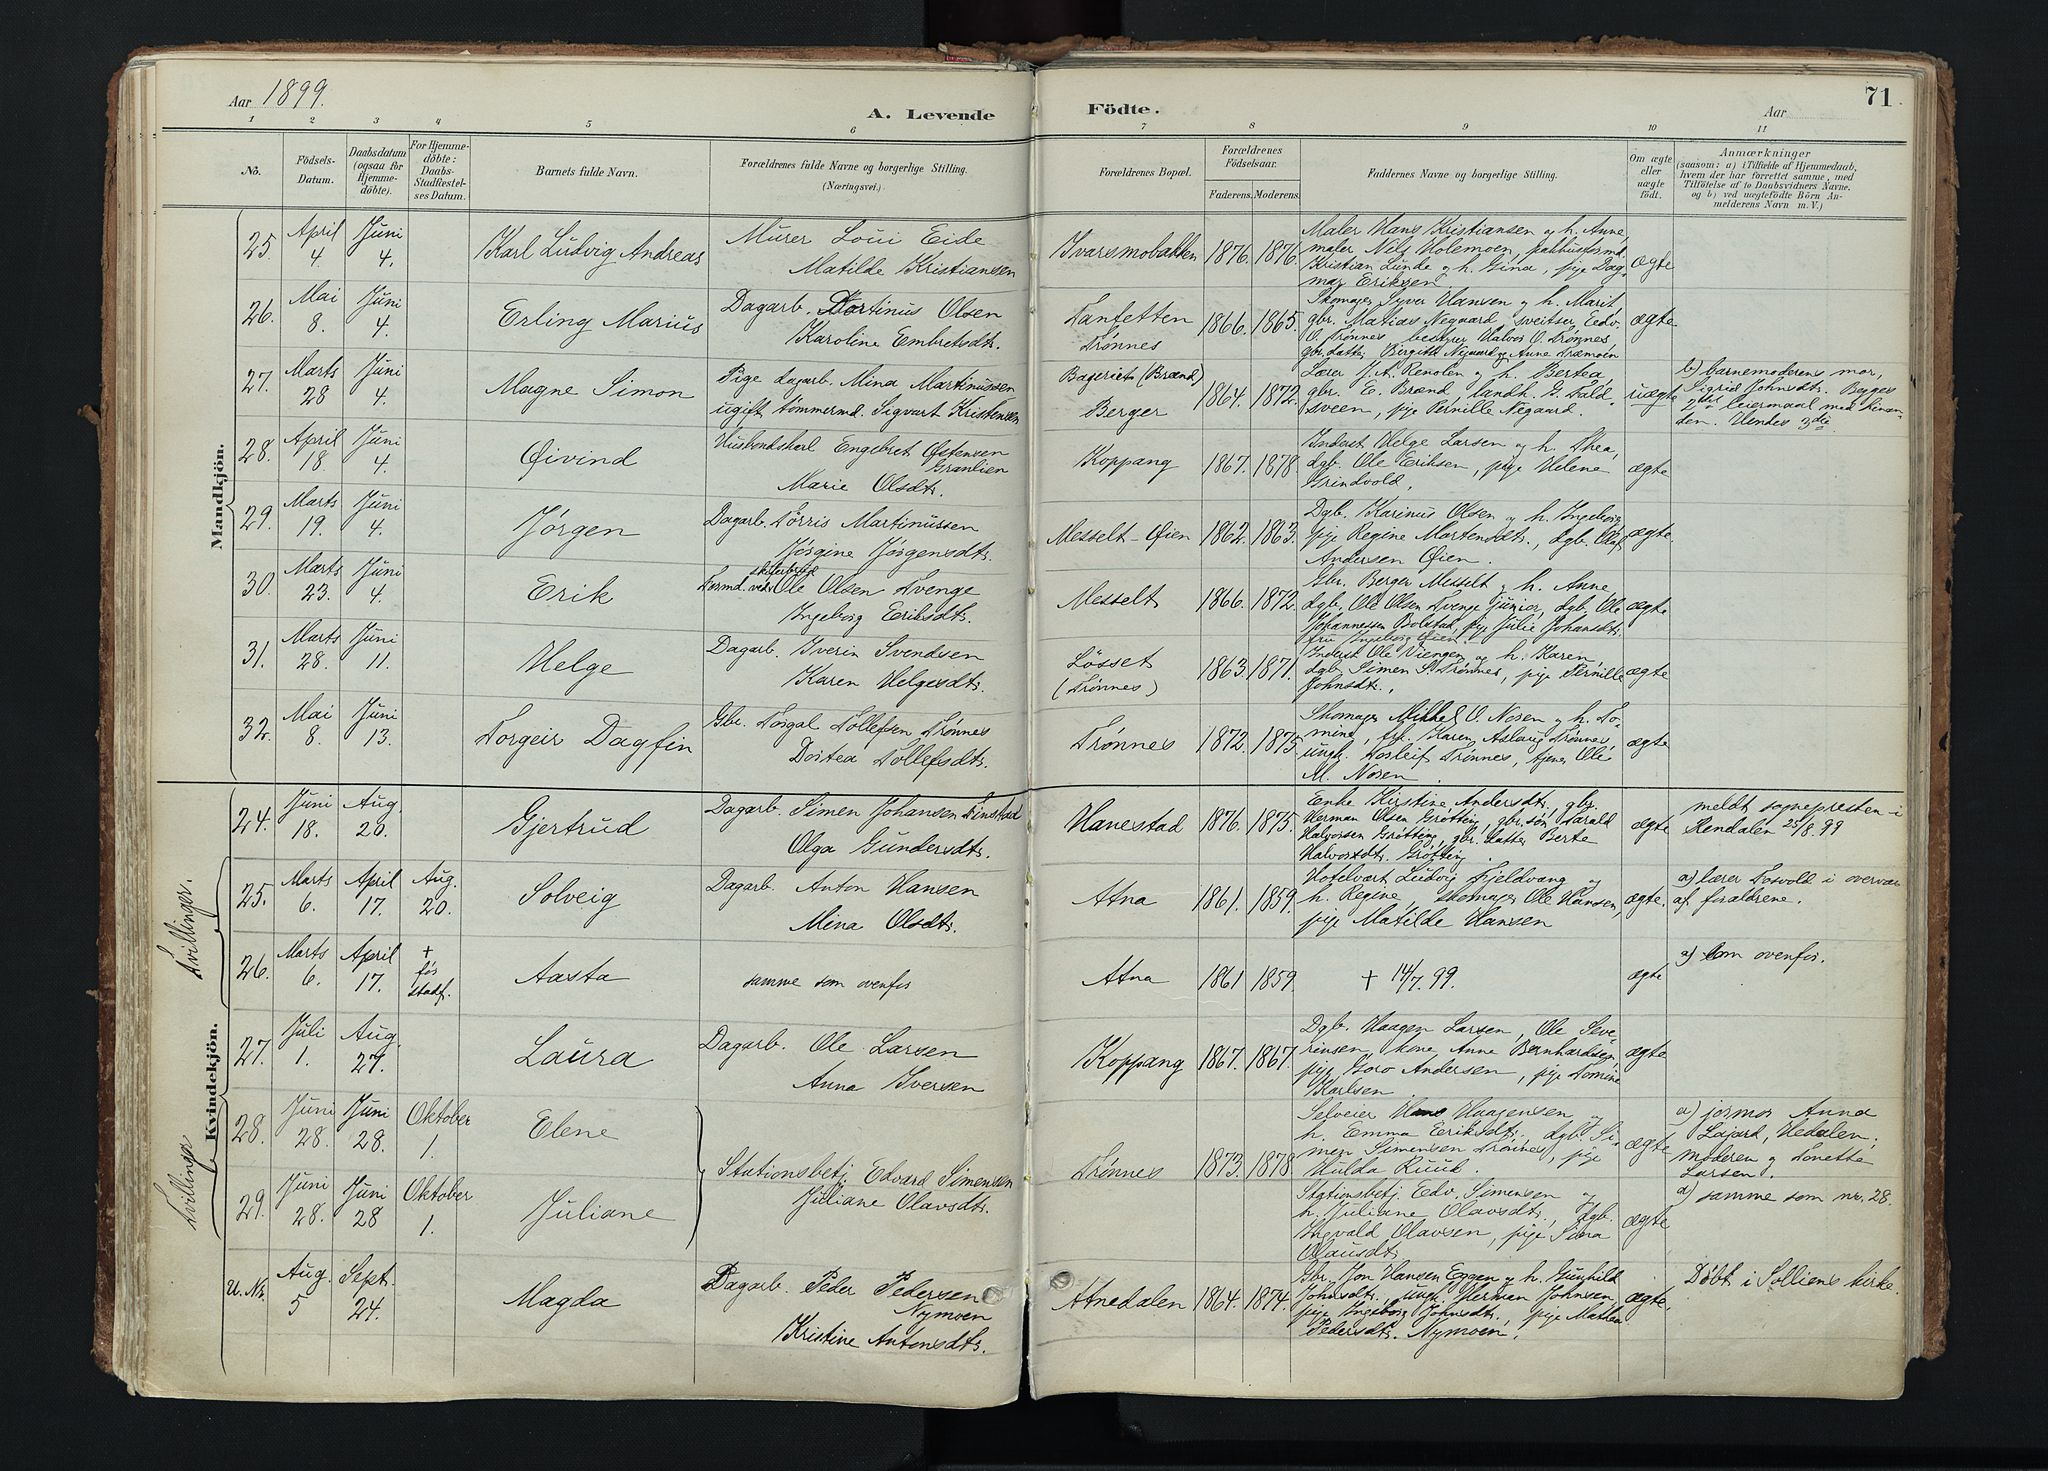 Aar 1899.
A. Levende
Födte.
Aar
71
1 2 3 4 5 6 7 8 9 10 11
No.
Födsels-Datum.
Daabsdatum (ogsaa for Hjemmedöbte).
For Hjemmedöbte: Daabs-Stadfæstelses Datum.
Barnets fulde Navn.
Forældrenes fulde Navne og borgerlige Stilling.
(Næringsvei.)
Forældrenes Bopæl.
Forældrenes Födselsaar.
Faderens. Moderens.
Faddernes Navne og borgerlige Stilling.
Om ægte eller uægte födt.
Anmærkninger
(saasom: a) i Tilfælde af Hjemmedaab, hvem der har forrettet samme, med Tilföielse af to Daabsvidners Navne, og b) ved uægtefödte Börn Anmelderens Navn m. V.)
Mandkjön.
25. April 4. Juni 4. Karl Ludvig Andreas
Murer Loui Eide
Matilde Kristiansen
Ivarsmobakken 1876. 1876.
Maler Hans Kristiansen og h. Anne,
maler Nils Holemoen, pakhusformd.
Kristian Lunde og h. Gina, pige Dag-
mar Eriksen
ægte
26. Mai 8. Juni 4. Erling Marius
Dagarb. Martinus Olsen
Karoline Embretsdtr.
Tanfetten
Trønnes
1866. 1865.
Skomager Syver Hansen og h. Marit
gbr. Matias Negaard, sveitser Edv.
O. Trønnes, bestyrer Halvor O. Trønnes,
gbr. datter Birgitte Negaard og Anne Træmoen
ægte
27. Marts 28 Juni 4. Magne Simon
Pige dagarb. Mina Martinussen
ugift tømmermd. Sigvart Kristensen
Bageriet (Brænd)
Berger
1864. 1872.
Lærer J. A. Renolen og h. Bertea
gbr. E. Brænd, landh. G. Fald-
sveen, pige Pernille Negaard.
uægte
b) barnemoderens mor,
Sigrid Johnsdtr. Begges
2det leiermaal med hinan-
den. Hendes 3die
28. April 18. Juni 4. Øivind
Husbondskarl Engebret Østensen
Granlien
Marie Olsdtr.
Koppang 1867. 1878
Inderst Helge Larsen og h. Thea,
dgb. Ole Eriksen, pige Helene
Grindvold.
ægte
29. Marts 19. Juni 4. Jørgen
Dagarb. Tørris Martinussen
Jørgine Jørgensdtr.
Messelt-Øien 1862. 1863.
Dgb. Karinus Olsen og h. Ingeborg
pige Regine Martensdtr., dgb. Olaf
Andersen Øien.
ægte.
30. Marts 23. Juni 4. Erik
Formd. ved Ole Olsen Tvenge
Ingeborg Eriksdtr.
Messelt 1866. 1872.
Gbr. Berger Messelt og h. Anne
dgb. Ole Olsen Tvenge junior, dgb. Ole
Johannessen Bolstad, pige Julie Johansdtr.
fru Ingeborg Øien
ægte
31. Marts 28. Juni 11. Helge
Dagarb. Iverin Svendsen
Karen Helgesdtr.
Løsset
(Trønnes)
1863. 1871.
Inderst Ole Viengen og h. Karen
dgb. Simen S. Trønnes, pige Pernille
Johnsdtr.
ægte
32. Mai 8. Juni 13. Torgeir Dagfin
Gbr. Torgal Tollefsen Trønnes
Dortea Tollefsdtr.
Trønnes 1872. 1875.
Skomager Mikkel O. Noren og h. To-
mine, frk. Karen Aslaug Trønnes,
ungk. Torleif Trønnes, tjener Ole
M. Noren.
ægte
Kvindekjön.
24. Juni 18. Aug. 20. Gjertrud
Dagarb. Simen Johansen Finstad
Olga Gundersdtr.
Hanestad 1876. 1875.
Enke Kirstine Andersdtr., gbr.
Herman Olsen Grøtting, gbr. søn Harald
Halvorsen Grøtting, gbr. datter Berte
Halvorsdtr. Grøtting.
ægte
meldt sognepresten i
Rendalen 25/8. 99
Tvillinger.
25. Marts 6. April 17. Aug. 20. Solveig
Dagarb. Anton Hansen
Mina Olsdtr.
Atna 1861. 1859.
Hotelvært Ludvig Fjeldvang og
h. Regine, skomager Ole Hansen,
pige Matilde Hansen
ægte.
a) lærer Torvold i overvær
af forældrene.
26. Marts 6. April 17. + før stadf. Aasta
samme som ovenfor
Atna 1861 1859.
+ 14/7. 99.
ægte
a) som ovenfor.
27. Juli 1. Aug. 27. Laura
Dagarb. Ole Larsen
Anna Iversen
Koppang 1867. 1867.
Dgb. Haagen Larsen, Ole Seve-
rinsen, kone Anne Bernhardsen,
pige Goro Andersen, pige Tomine
Karlsen
ægte
Tvillinger
28. Juni 28. Juni 28. Oktober 1. Elene
Stationsbetj. Edvard Simensen
Juliane Olavsdtr.
Trønnes 1873. 1878
Selveier Hans Haagensen og
h. Emma Eeriksdtr. dgb. Si-
men Simensen Trønnes, pige
Hulda Ruud.
ægte
a) jormor Anna
Lajord, Hedalen;
moderen og Tonette
Larsen.
29. Juni 28. Juni 28 Oktober 1. Juliane
Stationsbetj. Edv. Simensen og
h. Juliane Olavsdtr., dgb.
Ingvald Olavsen, pige Sina
Olausdtr.
ægte
a) samme som nr. 28.
U. Nr. Aug. 5 Sept. 24. Magda
Dagarb. Peder Pedersen
Nymoen
Kristine Antonsdtr.
Atnedalen 1864. 1874.
Gbr. Jon Hansen Eggen og h. Gunhild
Johnsdtr., ungk. Herman Johnsen,
pige Ingeborg Johnsdtr., pige Mathea
Pedersdtr. Nymoen.
ægte.
Døbt i Solliens kirke.